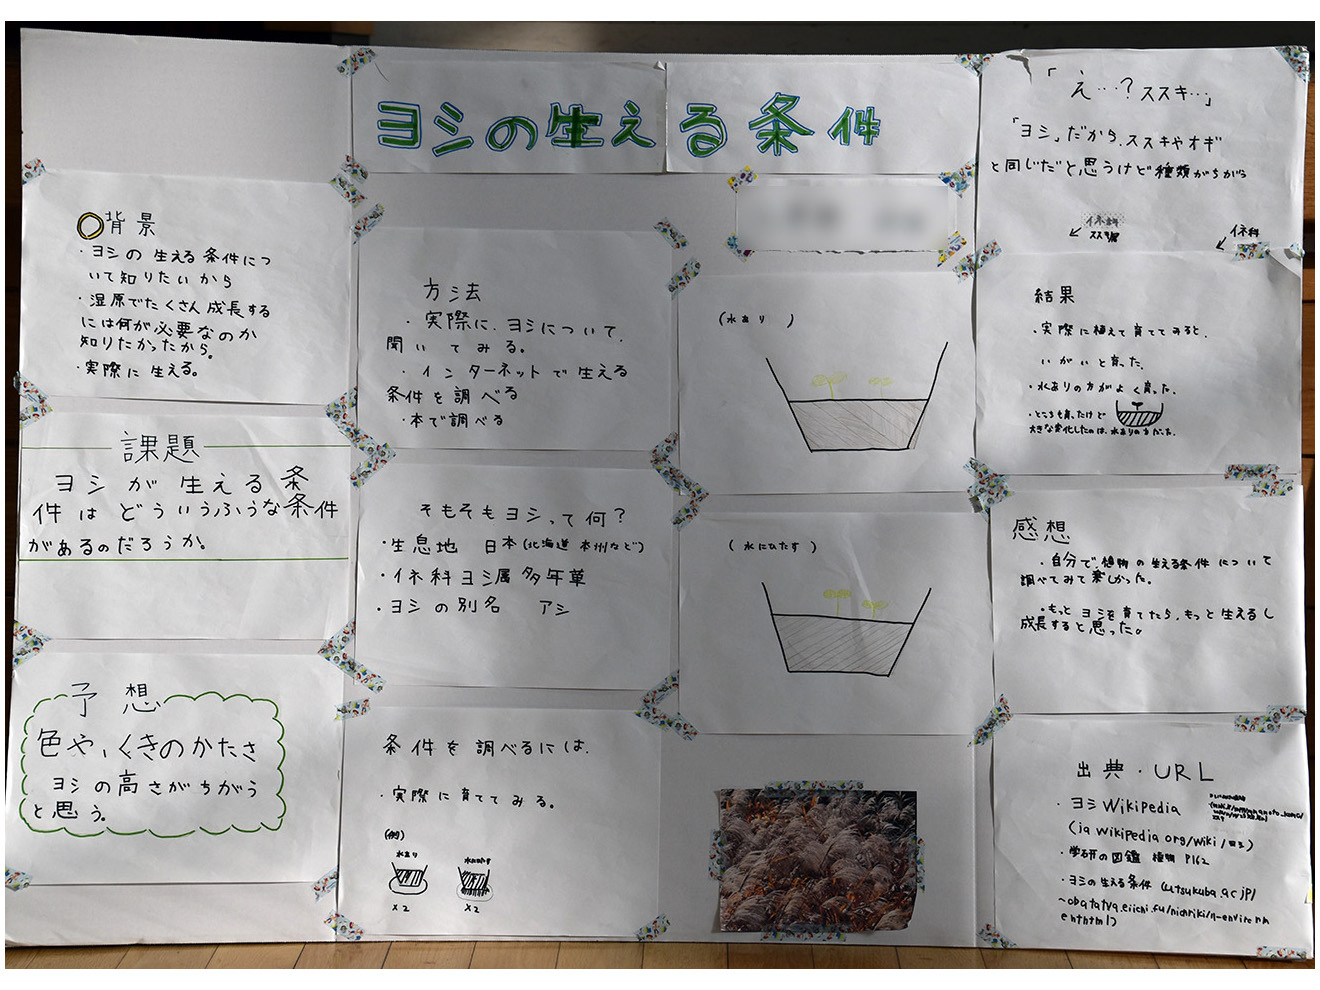 ヨシの生える条件
背景
・ヨシの生える条件につ
いて知りたいから
・湿原でたくさん成長する
には何が必要なのか
知りたかったから。
・実際に生える。
課題
ヨシが生える条
件はどういうふうな条件
があるのだろうか。
予想
色や、くきのかたさ
ヨシの高さがちがう
と思う。
方法
・実際に、ヨシについて、
聞いてみる。
・インターネットで生える
条件を調べる
・本で調べる
そもそもヨシって何？
・生息地 日本(北海道 本州など)
・イネ科ヨシ属多年草
・ヨシの別名 アシ
条件を調べるには、
・実際に育ててみる。
(例)
水あり
水にひたす
×2
×2
(水あり)
(水にひたす)
「え…？ススキ…」
「ヨシ」だから、ススキやオギ
と同じだと思うけど種類がちがう
イネ科
ススキ属
イネ科
結果
・実際に植えて育ててみると、
いがいと育った。
・水ありの方がよく育った。
・どっちも育ったけど
大きな変化したのは、水ありの方だった。
感想
・自分で、植物の生える条件について
調べてみて楽しかった。
・もっとヨシを育てたら、もっと生えるし
成長すると思った。
出典・URL
・ヨシWikipedia
(ja wikipedia org/wiki/ヨシ)
・学研の図鑑 植物 P162
・ヨシの生える条件 (u.tsukuba.ac.jp/